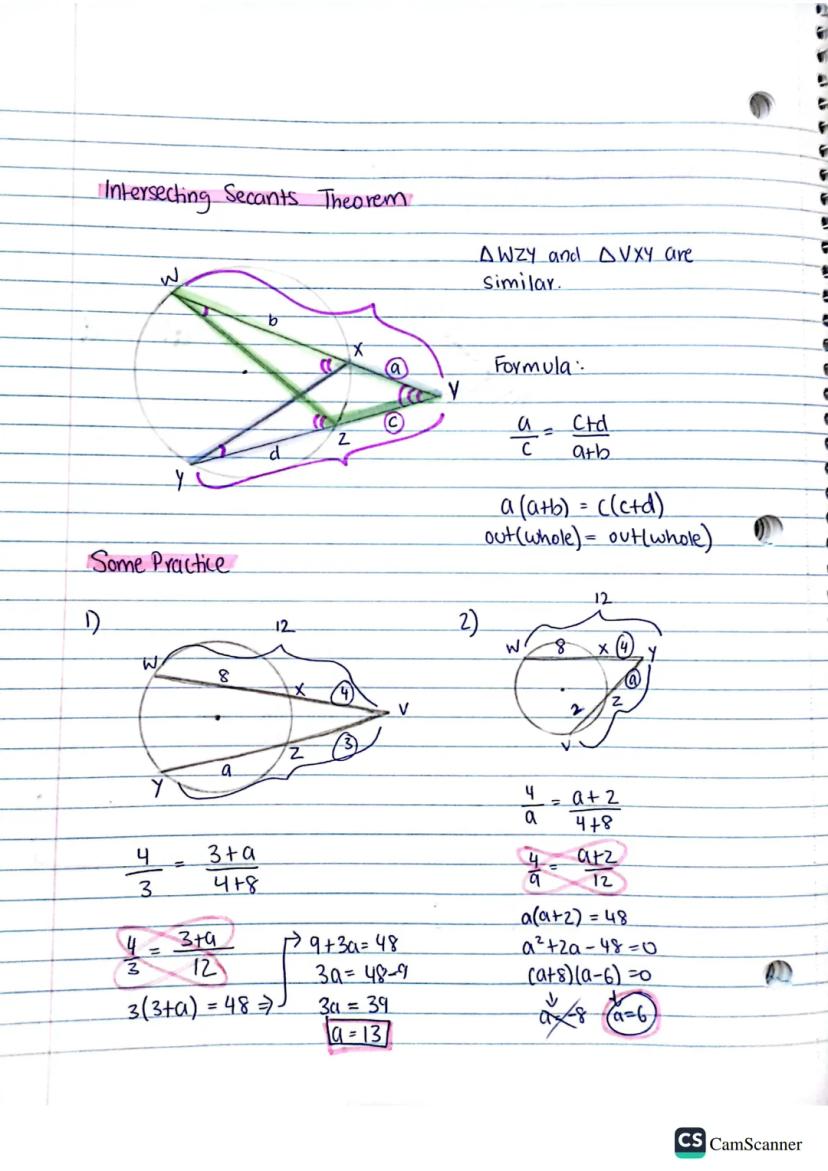 Intersecting Secants Theorem
△WZY and △VXY are
similar.
W
b
X
a
V
c
Z
d
Y
Formula:
a/c = c+d/a+b
a(a+b) = c(c+d)
out(whole) = out(whole)
Some Practice
1)
12
W
8
X
4
V
3
Z
a
Y
4/3 = 3+a/4+8
4/3 = 3+a/12
3(3+a) = 48 ⇒
9+3a = 48
3a = 48-9
3a = 39
a = 13
2)
12
W
8
X
4
Y
a
Z
2
V
4/a = a+2/4+8
4/a = a+2/12
a(a+2) = 48
a²+2a-48=0
(a+8)(a-6)=0
a=-8 a=6
CS CamScanner